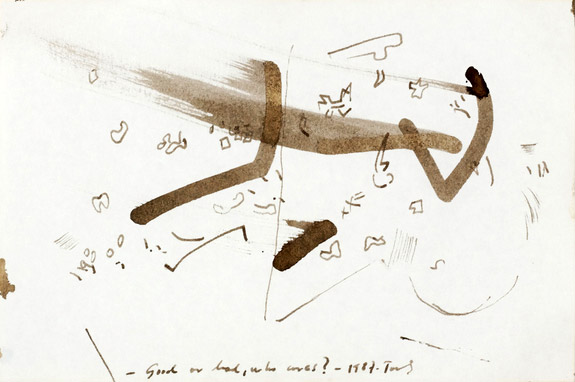 – Good or bad, who cares? – 1987. Tons